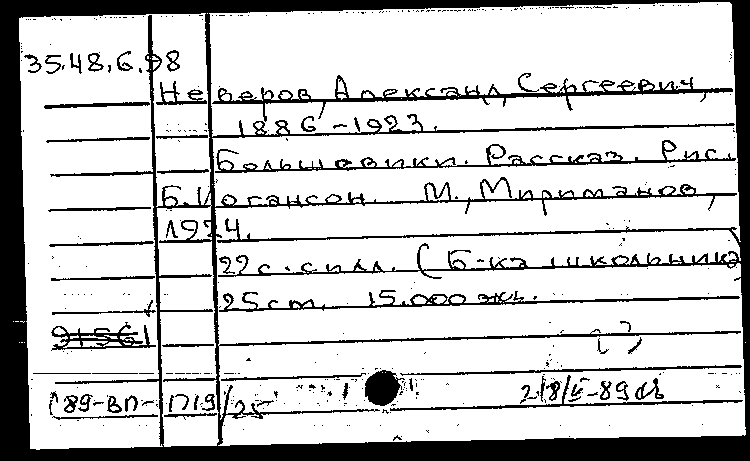 35.48.6.98
Неверов, Александ, Сергеевич,
1886-1923.
Большевики. Рассказ. Рис.
Б. Иогансон. М., Мириманов,
1924.
22 с. с илл. (Б-ка школьника)
25 cm. 15.000 экз.
91561
89-ВП-1719/25